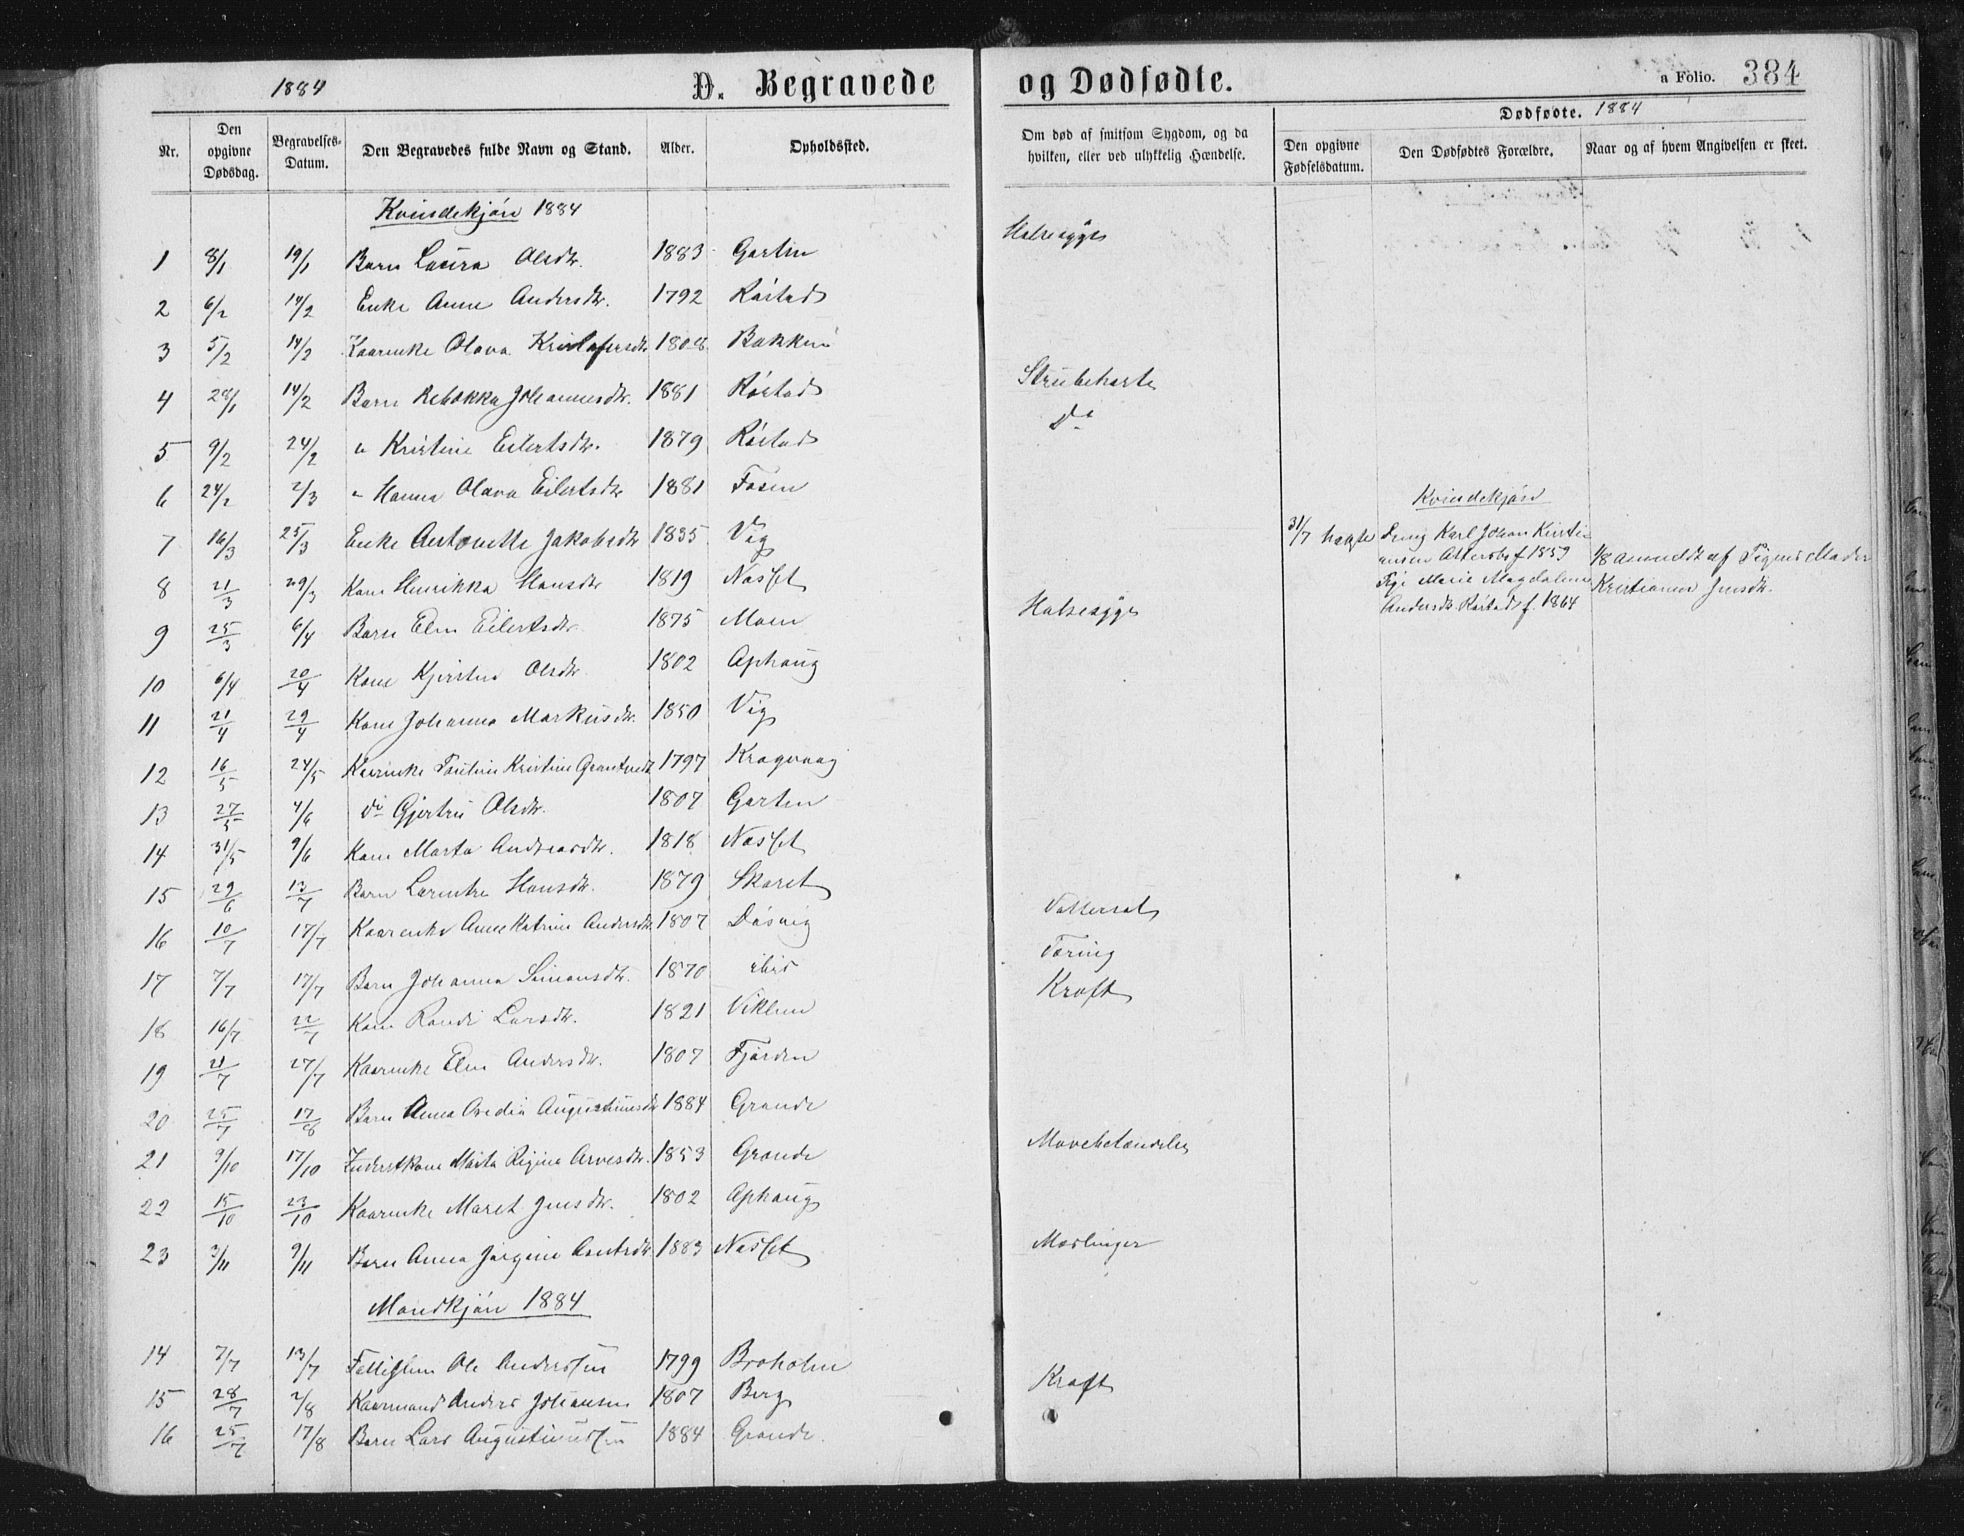 1884 D. Begravede og Dødfødte. a Folio. 384
Dødfødte. 1884
Nr. Den opgivne Dødsdag. Begravelses-Datum. Den Begravedes fulde Navn og Stand. Alder. Opholdssted. Om død af smitsom Sygdom, og da hvilken, eller ved ulykkelig Hændelse. Den opgivne Fødselsdatum. Den Dødfødtes Forældre. Naar og af hvem Angivelsen er skeet.
Kvindekjøn 1884
1 8/1 19/1 Barn Laura Olsdtr. 1883 Garten Halsesyge
2 6/2 14/2 Enke Anne Andersdtr. 1792 Røstad
3 5/2 14/2 Kaarenke Olava 1808 Bakken
4 28/1 14/2 Barn Rebekka Johannesdtr. 1881 Røstad Strubehoste
5 9/2 24/2 " Kristine Eilertsdtr. 1879 Røstad Do
6 24/2 2/3 " Hanna Olava Eilertsdtr 1881 Fosen
7 16/3 25/3 Enke Antonette Jakobsdtr 1835 Vig
8 21/3 29/3 Kone Henrikka Hansdtr 1819 Nasset
9 25/3 6/4 Barn Elen Eilertsdtr. 1875 Moen Halsesyge
10 6/4 20/4 Kone Kjersten Olsdtr. 1802 Ophaug
11 21/4 29/4 Kone Johanna Markusdtr. 1850 Vig
12 16/5 24/5 Kaarenke Kristine 1797 Kragvaag
13 27/5 4/6 do Gjertru Olsdtr. 1807 Garten
14 31/5 9/6 Kone Marta Andreasdtr. 1818 Nasset
15 29/6 13/7 Barn Lorentse Hansdtr. 1879 Skaret
16 10/7 17/7 Kaarenke Anne Katrine Andersdtr. 1807 Døsvig Vattersot
17 7/7 17/7 Barn Johanna Simonsdtr. 1870 ibid Tæring
18 16/7 22/7 Kone Randi Larsdtr. 1821 Viklem Kræft
19 21/7 27/7 Kaarenke Elen Andersdtr. 1807 Fjorden
20 25/7 17/8 Barn Anna Augustinusdtr 1884 Grande
21 9/10 17/10 Inderstkone Marta Regine Arvesdtr. 1853 Grande Mavebetændelse
22 15/10 23/10 Kaarenke Maret Jensdtr. 1802 Ophaug
23 3/11 9/11 Barn Anna Jørgine 1883 Nasset Mæslinger
Kvindekjøn
31/7 Ung Karl Johan Kristi-
ansen f 1859
Pige Marie Magdalena
Andersdtr. Røstad f. 1864
1/8 anmeldt af Pigens Moder
Kristianna Jensdtr.
Mandkjøn 1884
14 7/7 13/7 Ole Anderssen 1799 Broholm
15 28/7 2/8 Kaarmand Anders Johansen 1807 Berg Kræft
16 25/7 17/8 Barn Lars Augustinussen 1884 Grande.